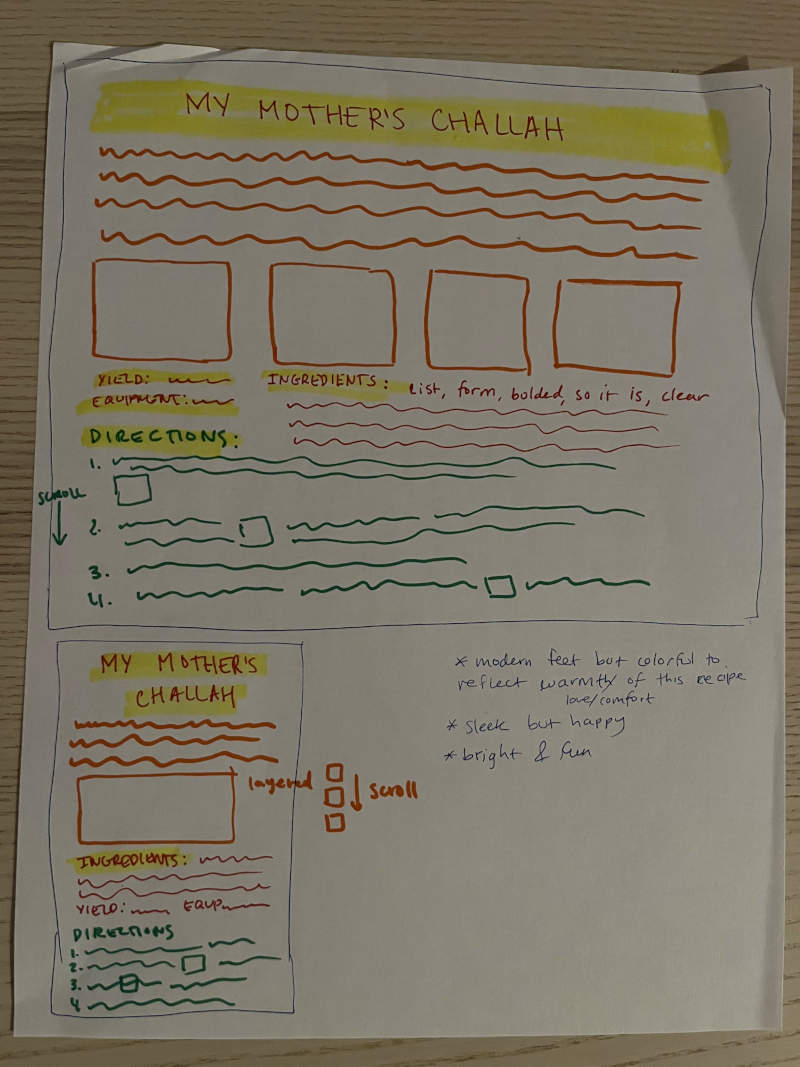 MY MOTHER'S CHALLAH
YIELD:
EQUIPMENT:
INGREDIENTS: list, form, bolded, so it is, clear
DIRECTIONS:
1.
SCROLL
2.
3.
4.
MY MOTHER'S
CHALLAH
layered
scroll
INGREDIENTS:
YIELD: EQUP
DIRECTIONS
1.
2.
3.
4
* modern feet but colorful to
reflect warmth of this recipe
love/comfort
* sleek but happy
* bright & fun